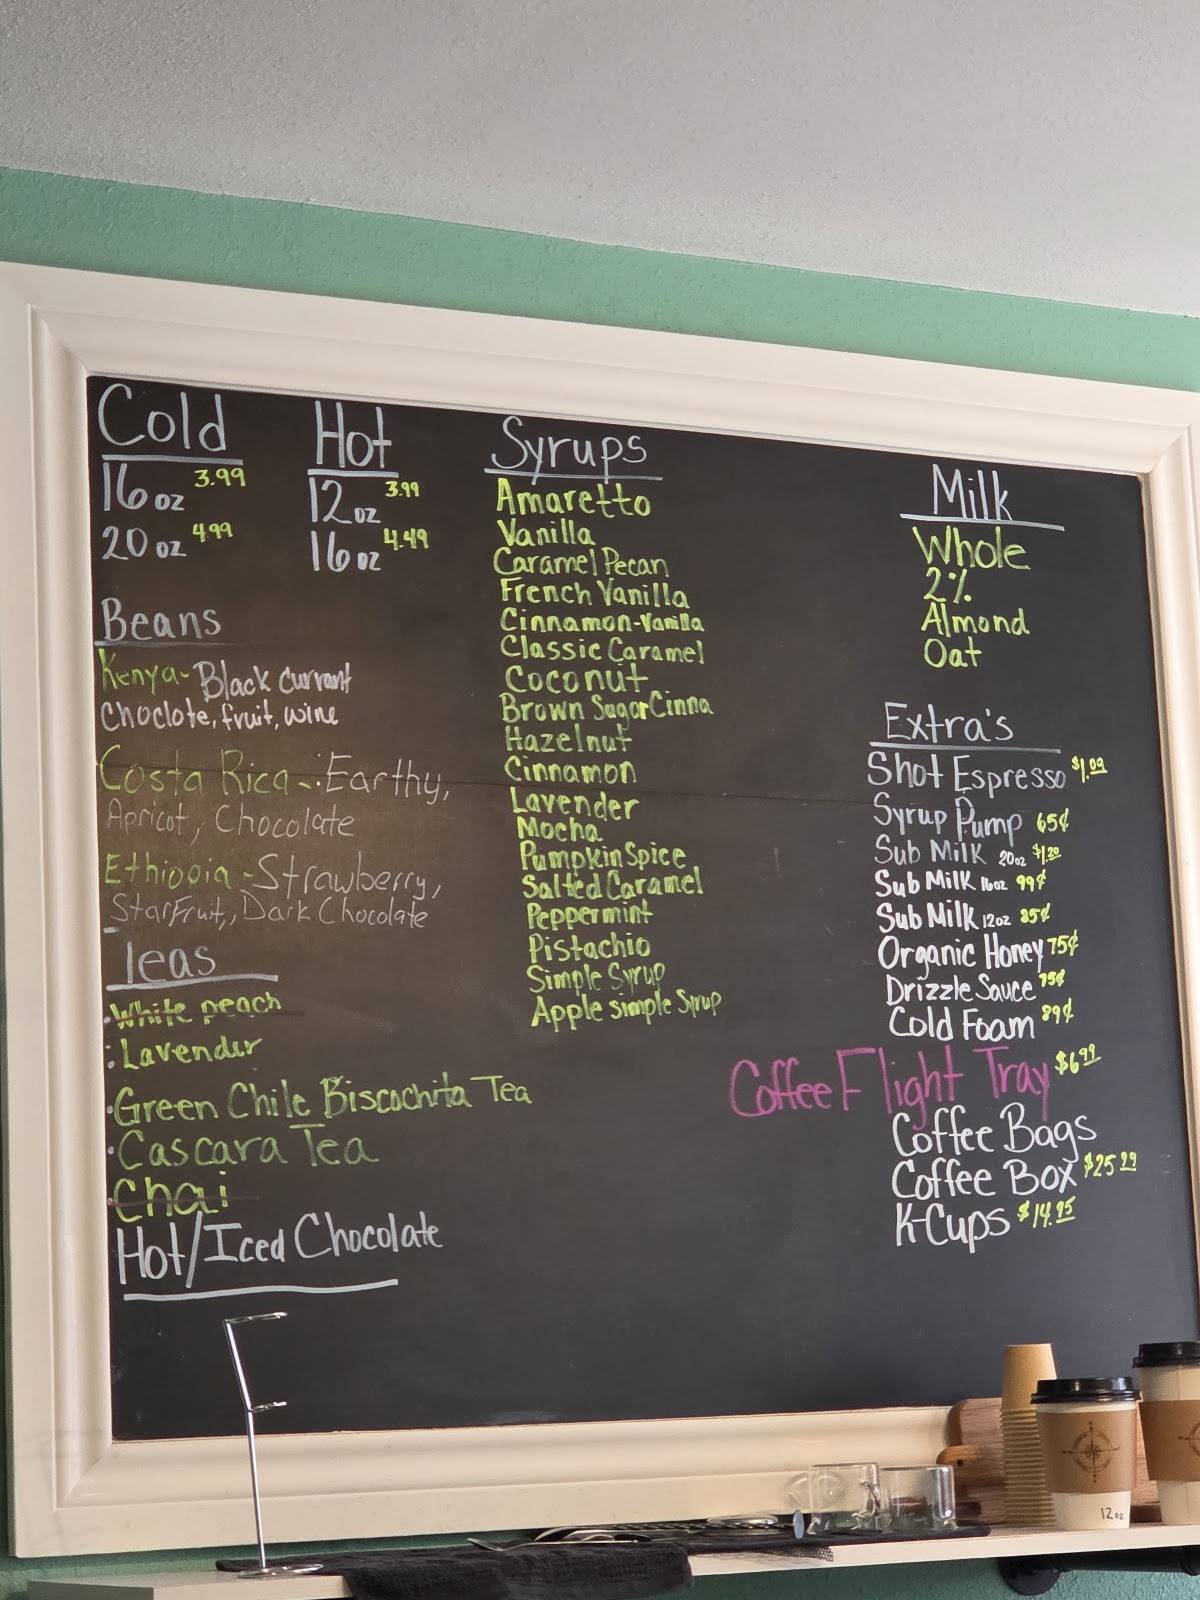 Cold
16 oz 3.99
20 oz 4.99
Hot
12 oz 3.99
16 oz 4.49
Beans
Kenya- Black currant
Choclote, fruit, wine
Costa Rica - Earthy,
Apricot, Chocolate
Ethiopia - Strawberry,
StarFruit, Dark Chocolate
Teas
·White peach
·Lavender
·Green Chile Biscochita Tea
·Cascara Tea
·Chai
Hot/Iced Chocolate
Syrups
Amaretto
Vanilla
Caramel Pecan
French Vanilla
Cinnamon-Vanilla
Classic Caramel
Coconut
Brown Sugar Cinna
Hazelnut
Cinnamon
Lavender
Mocha
Pumpkin Spice
Salted Caramel
Peppermint
Pistachio
Simple Syrup
Apple simple Syrup
Milk
Whole
2%
Almond
Oat
Extra's
Shot Espresso $1.09
Syrup Pump 65¢
Sub Milk 20oz $1.20
Sub Milk 16oz 99¢
Sub Milk 12oz 85¢
Organic Honey 75¢
Drizzle Sauce 75¢
Cold Foam 89¢
Coffee Flight Tray $6.99
Coffee Bags
Coffee Box $25.99
K-Cups $14.95
12oz